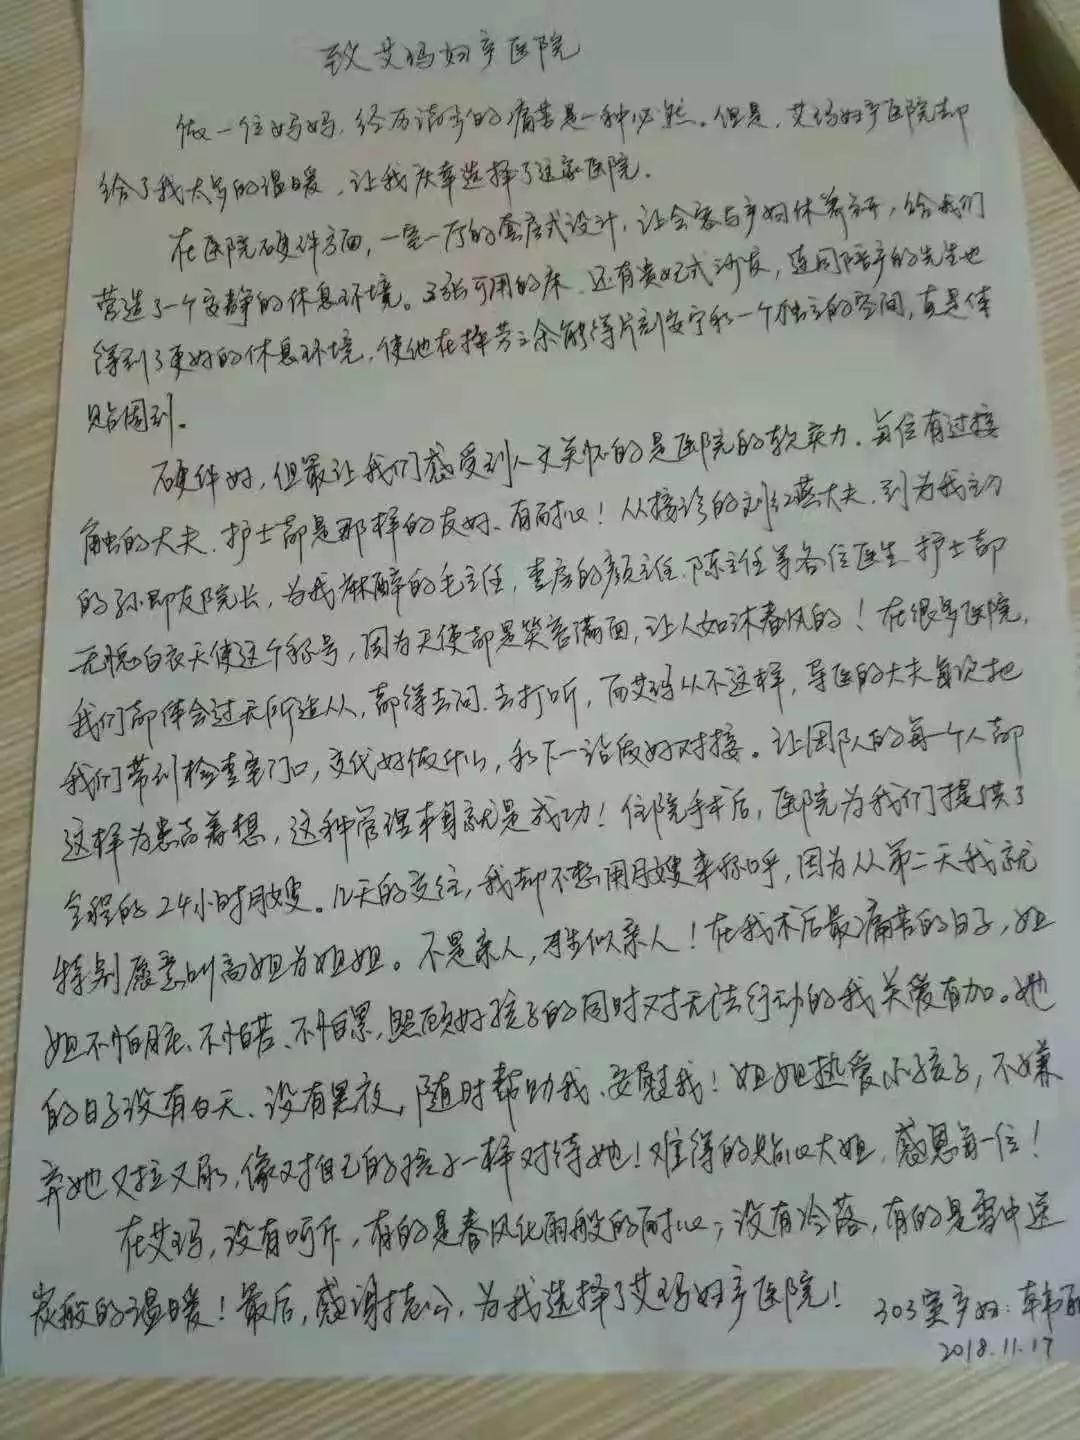 致艾玛妇产医院
做一位妈妈，经历诸多的痛苦是一种必然。但是，艾玛妇产医院却
给了我太多的温暖，让我庆幸选择了这家医院。
在医院硬件方面，一室一厅的套房式设计，让会客与产妇休养分开，给我们
营造了一个安静的休息环境。三张可用的床、还有贵妃式沙发，连同陪产的先生也
得到了更好的休息环境，使他在操劳之余能得片刻安宁和一个独立的空间，真是体
贴周到。
硬件好，但最让我们感受到人文关怀的是医院的软实力。每位有过接
触的大夫、护士都是那样的友好、有耐心！从接诊的刘红燕大夫，到为我主刀
的孙即友院长，为我麻醉的毛主任，查房的颜主任、陈主任等各位医生、护士都
无愧白衣天使这个称号，因为天使都是笑容满面，让人如沐春风的！在很多医院，
我们都体会过无所适从，都得去问、去打听，而艾玛从不这样，导医的大夫每次把
我们带到检查室门口，交代好做什么，和下一站做好对接。让团队的每一个人都
这样为患者着想，这种管理本身就是成功！住院手术后，医院为我们提供了
全程的24小时月嫂。几天的交往，我却不想用月嫂来称呼，因为从第二天我就
特别愿意叫高姐为姐姐。不是亲人，胜似亲人！在我术后最痛苦的日子，姐
姐不怕脏、不怕苦、不怕累，照顾好孩子的同时对无法行动的我关爱有加。她
的日子没有白天、没有黑夜，随时帮助我、安慰我！姐姐热爱小孩子，不嫌
弃她又拉又尿，像对自己的孩子一样对待她！难得的贴心大姐，感恩每一位！
在艾玛，没有呵斥，有的是春风化雨般的耐心；没有冷落，有的是雪中送
炭般的温暖！最后，感谢老公，为我选择了艾玛妇产医院！
303室产妇：韩
2018.11.17